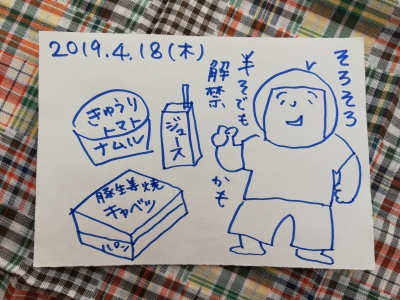 2019.4.18(木)
そろそろ
半そでも
解禁
かも
きゅうり
トマト
ナムル
ジュース
豚生姜焼
キャベツ
パン